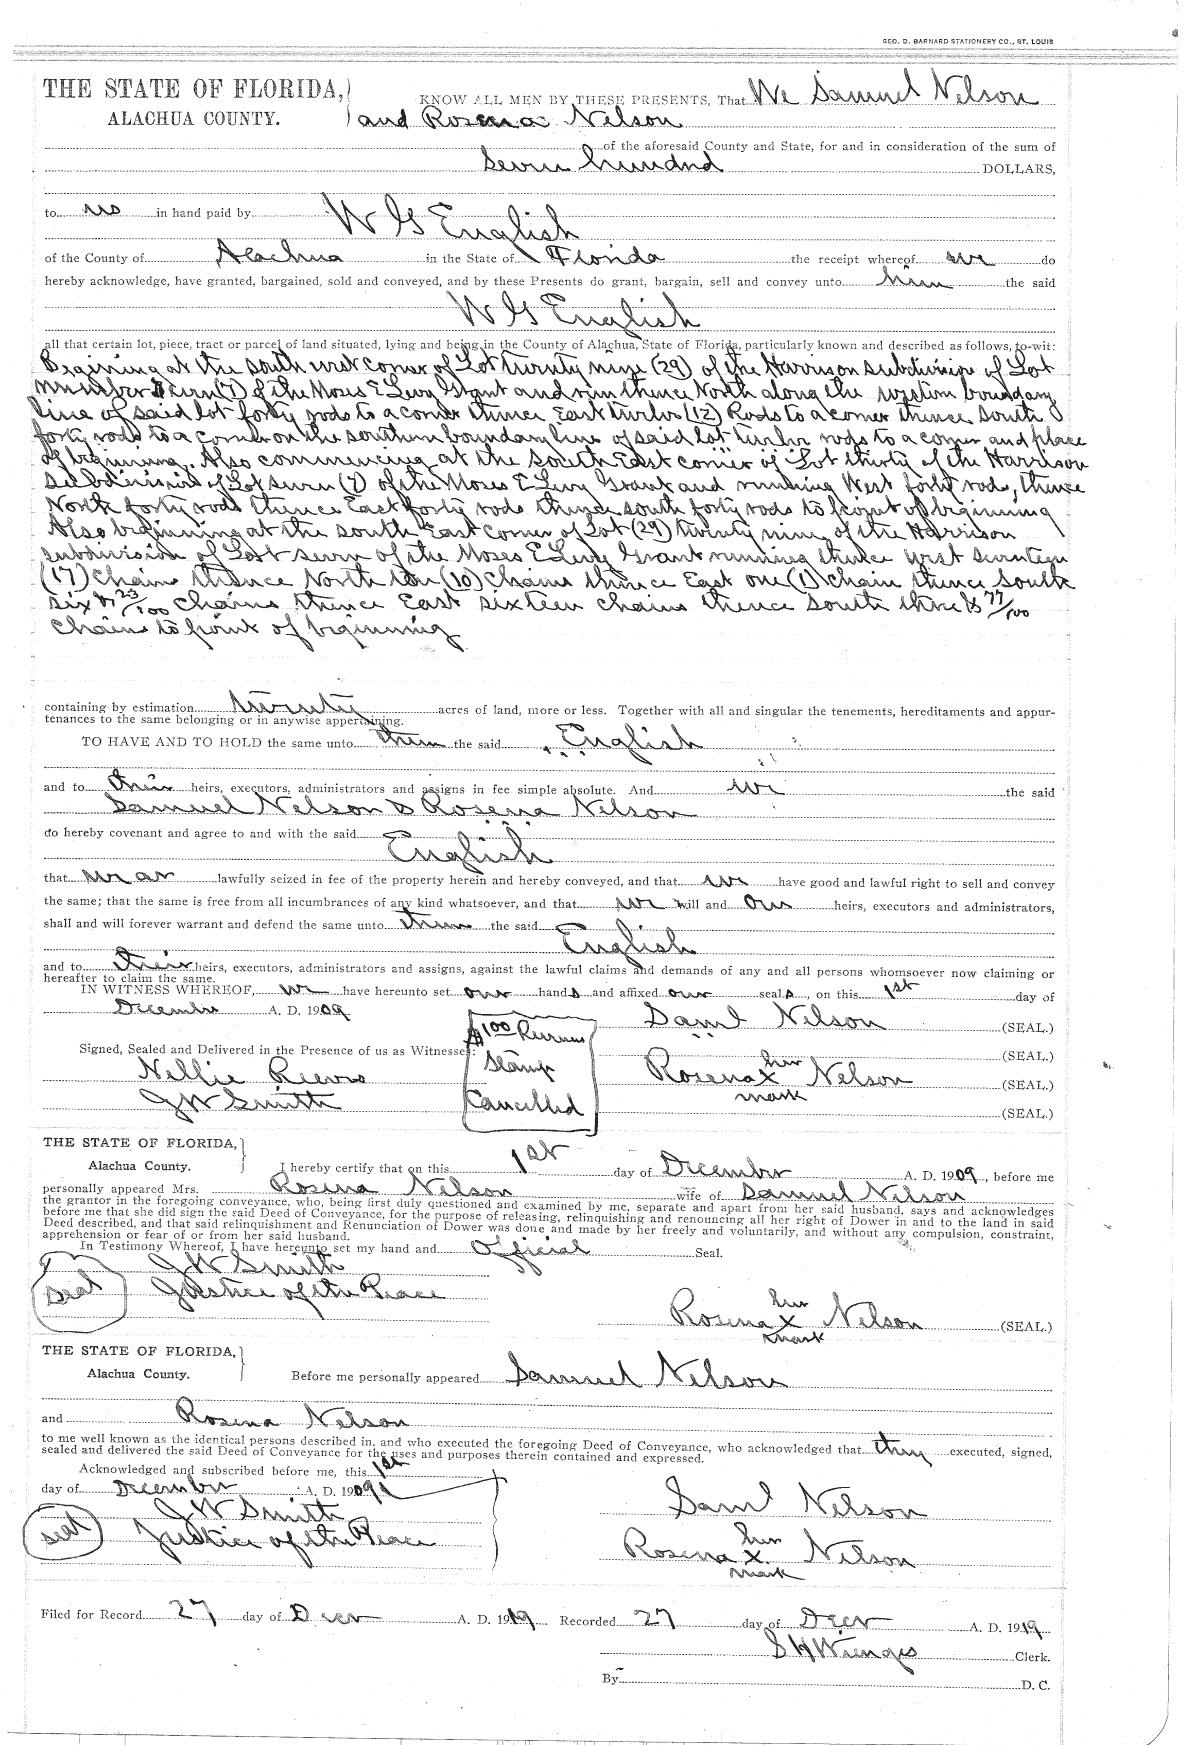 GEO. D. BARNARD STATIONERY CO., ST. LOUIS
THE STATE OF FLORIDA,
ALACHUA COUNTY.
KNOW ALL MEN BY THESE PRESENTS, That We Samuel Nelson
and Rosena Nelson
of the aforesaid County and State, for and in consideration of the sum of
Seven hundred DOLLARS,
to us in hand paid by
W G English
of the County of Alachua in the State of Florida the receipt whereof we do
hereby acknowledge, have granted, bargained, sold and conveyed, and by these Presents do grant, bargain, sell and convey unto him the said
W G English
all that certain lot, piece, tract or parcel of land situated, lying and being in the County of Alachua, State of Florida, particularly known and described as follows, to-wit:
Begining at the south west corner of Lot twenty nine (29) of the Harrison subdivision of Lot
number Seven (7) of the Moses E Levy Grant and run thence North along the western boundary
line of said lot forty rods to a corner thence East twelve (12) Rods to a corner thence south
forty rods to a corner on the southern boundary line of said lot twelve rods to a corner and place
of beginning. Also commencing at the South East corner of Lot thirty of the Harrison
Subdivision of Lot Seven (7) of the Moses E Levy Grant and running West forty rods, thence
North forty rods thence East forty rods thence south forty rods to point of beginning
Also beginning at the south East Corner of Lot (29) twenty nine of the Harrison
subdivision of Lot seven of the Moses E Levy Grant running thence west seventeen
(17) Chains thence North ten (10) Chains thence East one (1) Chain thence South
six & 23/100 Chains thence East sixteen chains thence south three & 77/100
Chains to point of beginning
containing by estimation twenty acres of land, more or less. Together with all and singular the tenements, hereditaments and appur-
tenances to the same belonging or in anywise appertaining.
TO HAVE AND TO HOLD the same unto them the said English
and to their heirs, executors, administrators and assigns in fee simple absolute. And we the said
Samuel Nelson & Rosena Nelson
do hereby covenant and agree to and with the said
English
that we are lawfully seized in fee of the property herein and hereby conveyed, and that we have good and lawful right to sell and convey
the same; that the same is free from all incumbrances of any kind whatsoever, and that we will and our heirs, executors and administrators,
shall and will forever warrant and defend the same unto them the said
English
and to their heirs, executors, administrators and assigns, against the lawful claims and demands of any and all persons whomsoever now claiming or
hereafter to claim the same.
IN WITNESS WHEREOF, we have hereunto set our hands and affixed our seals, on this 1st day of
December A. D. 1909
Saml Nelson (SEAL.)
$1.00 Revenue
Stamp
Cancelled
(SEAL.)
Signed, Sealed and Delivered in the Presence of us as Witnesses:
Nellie Reeves
J W Smith
Rosena her X mark Nelson (SEAL.)
(SEAL.)
THE STATE OF FLORIDA,
Alachua County.
I hereby certify that on this 1st day of December A. D. 1909, before me
personally appeared Mrs. Rosena Nelson wife of Samuel Nelson
the grantor in the foregoing conveyance, who, being first duly questioned and examined by me, separate and apart from her said husband, says and acknowledges
before me that she did sign the said Deed of Conveyance, for the purpose of releasing, relinquishing and renouncing all her right of Dower in and to the land in said
Deed described, and that said relinquishment and Renunciation of Dower was done and made by her freely and voluntarily, and without any compulsion, constraint,
apprehension or fear of or from her said husband.
In Testimony Whereof, I have hereunto set my hand and Official Seal.
J W Smith
Seal
Justice of the Peace
Rosena her X mark Nelson (SEAL.)
THE STATE OF FLORIDA,
Alachua County.
Before me personally appeared Samuel Nelson
and Rosena Nelson
to me well known as the identical persons described in, and who executed the foregoing Deed of Conveyance, who acknowledged that they executed, signed,
sealed and delivered the said Deed of Conveyance for the uses and purposes therein contained and expressed.
Acknowledged and subscribed before me, this 1st
day of December A. D. 1909
J W Smith
Seal
Justice of the Peace
Saml Nelson
Rosena her X mark Nelson
Filed for Record 27 day of Decr A. D. 1919 Recorded 27 day of Decr A. D. 1919
S H Wienges Clerk.
By D. C.